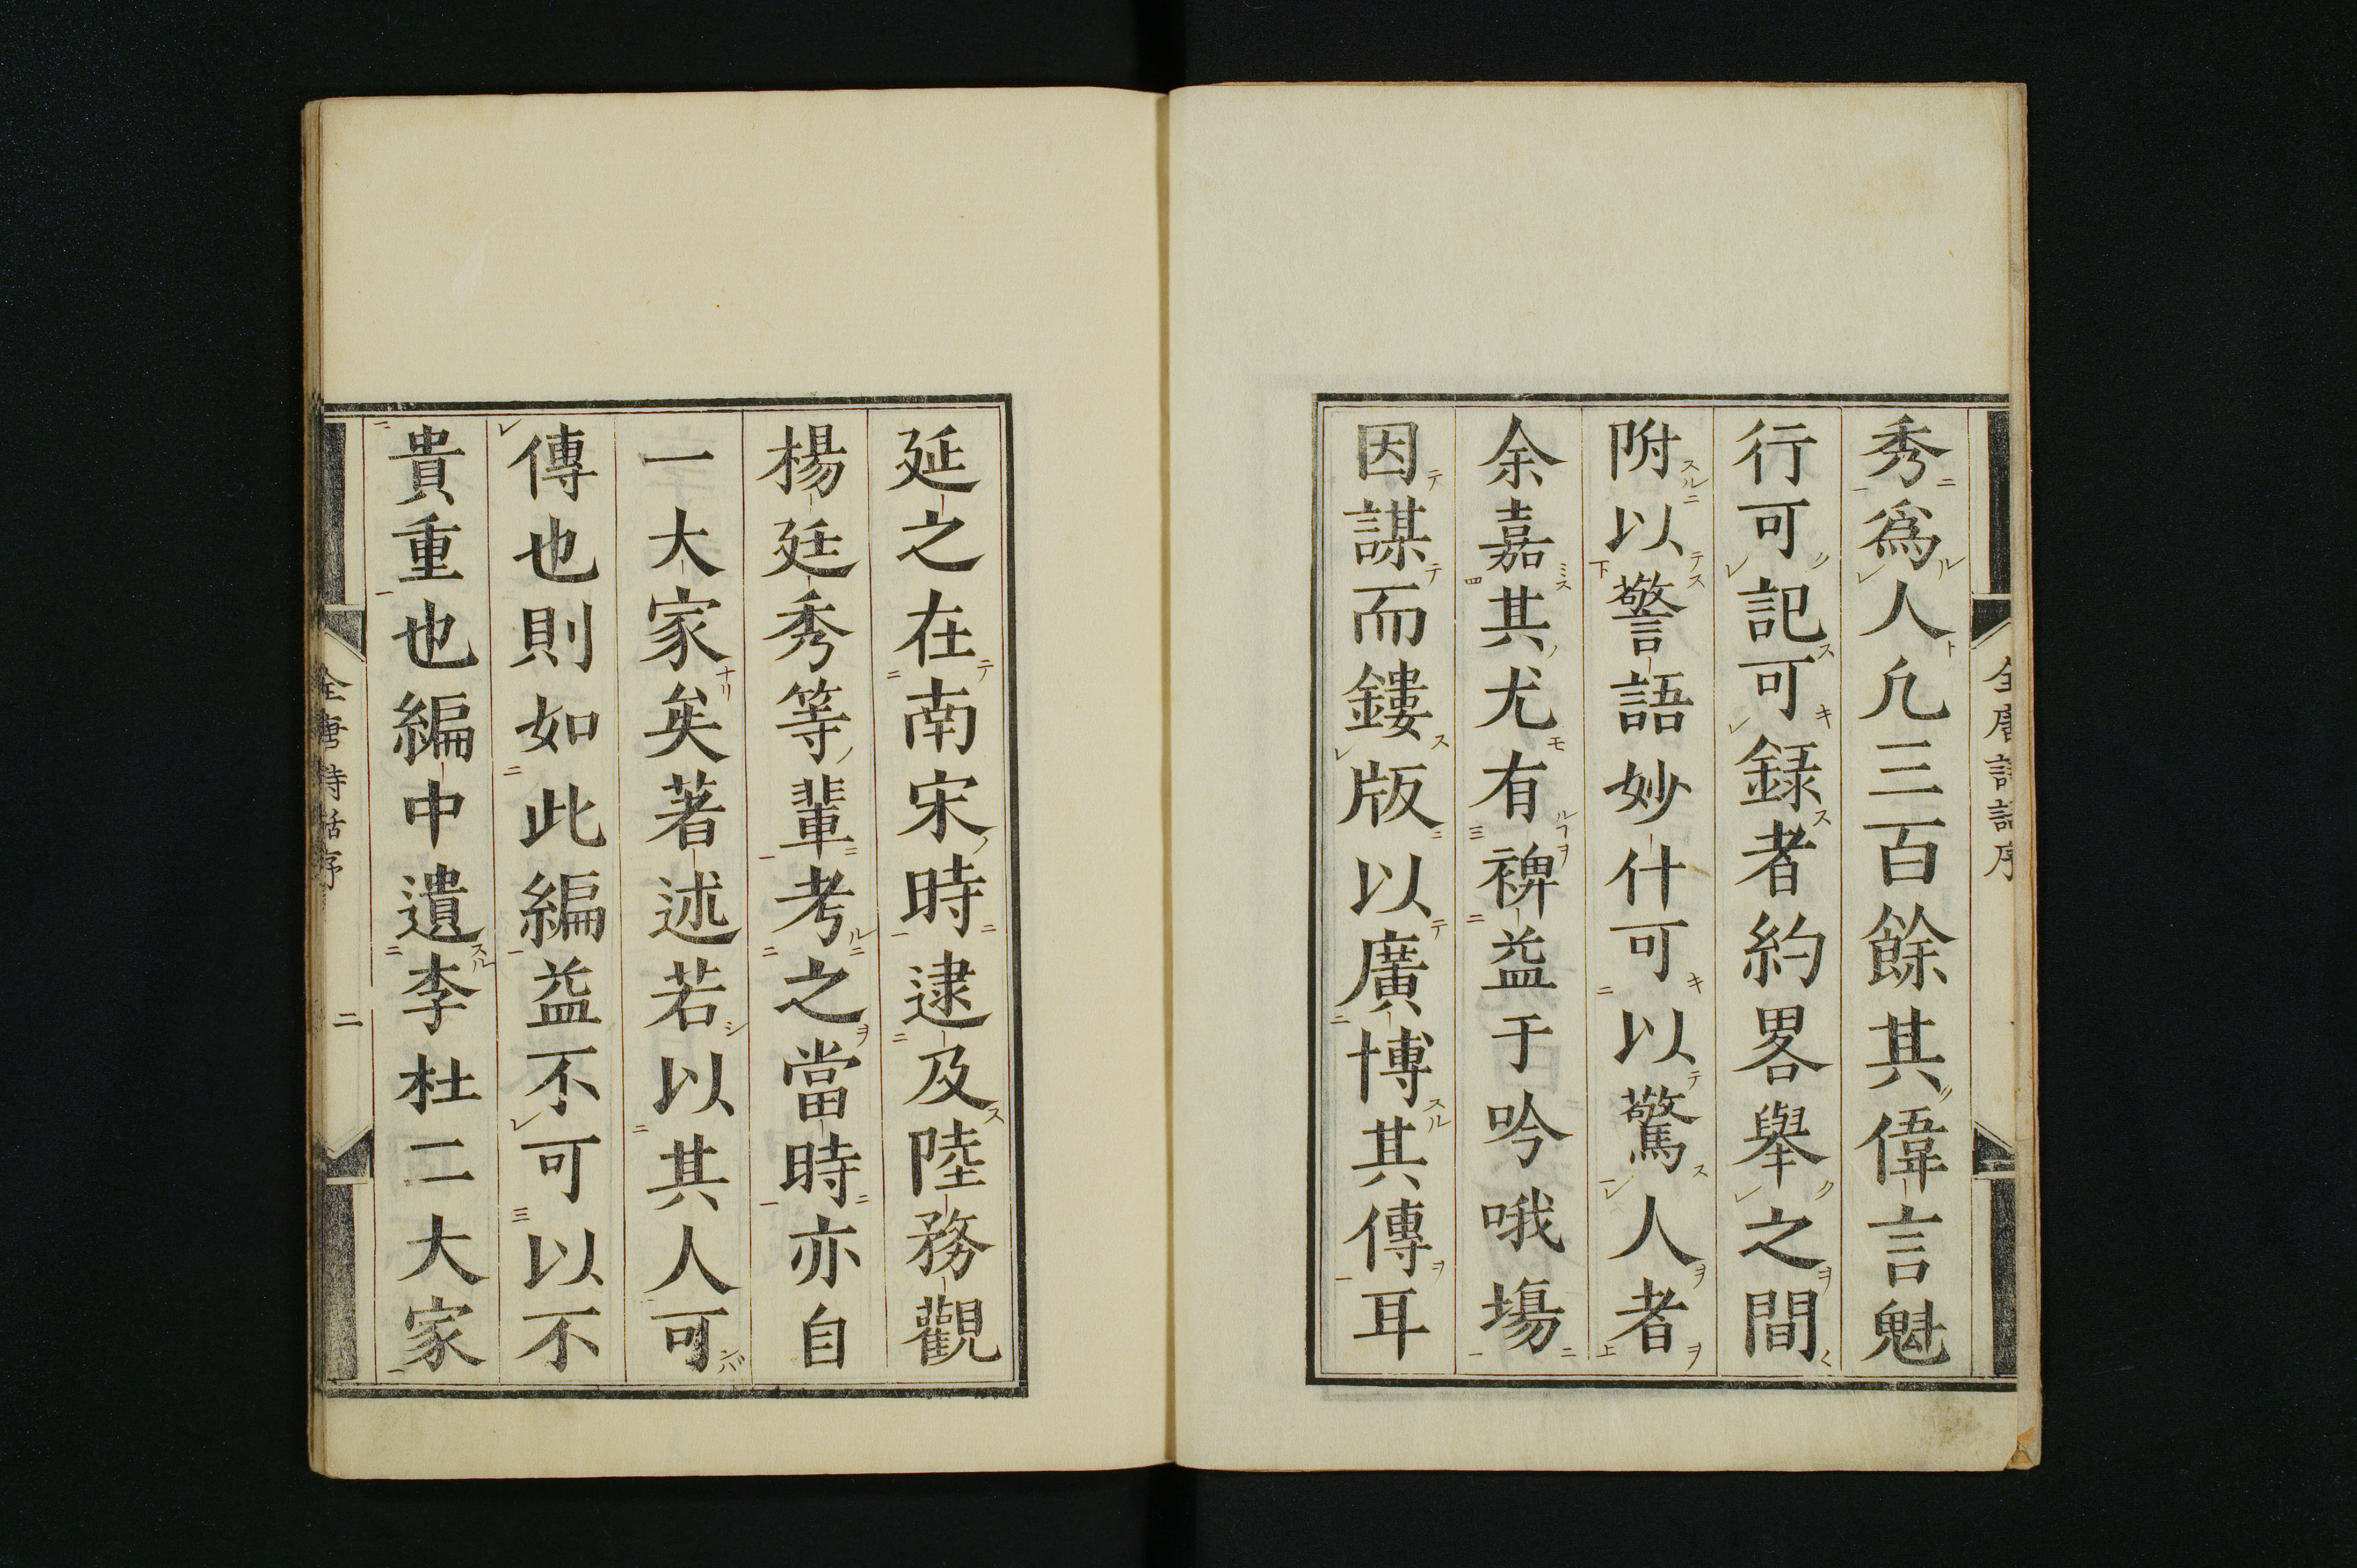 秀爲人凢三百餘其偉言魁
行可記可録者約畧舉之間
附以警語妙什可以驚人者
余嘉其尤有裨益于吟哦塲
因謀而鏤版以廣博其傳耳
延之在南宋時逮及陸務觀
楊廷秀等輩考之當時亦自
一大家矣著述若以其人可
傳也則如此編益不可以不
貴重也編中遺李杜二大家
全唐詩話序
二